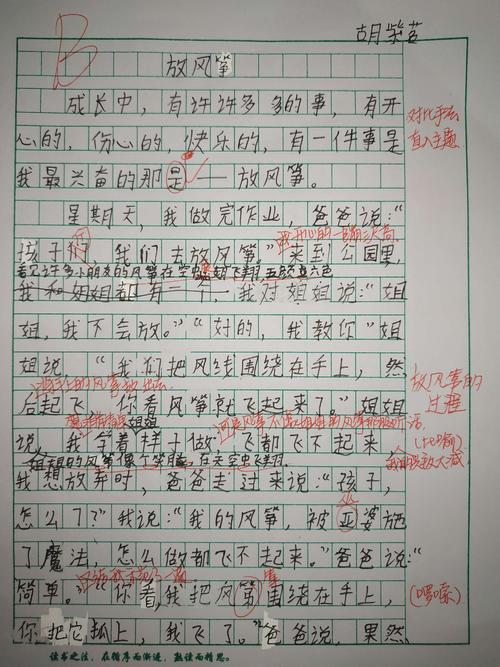 胡紫茗
B
放风筝
成长中，有许许多多的事，有开
心的，伤心的，快乐的，有一件事是
对比手法
直入主题
我最兴奋的那是——放风筝。
星期天，我做完作业，爸爸说：“
我开心的一蹦三尺高
孩子们，我们去放风筝。”来到公园里，
看见许多小朋友的风筝在空中翱飞翔，五颜六色
我和姐姐都有一个，我对姐姐说：“姐
姐，我不会放。”“好的，我教你”姐
姐说，“我们把风线围绕在手上，然
放风筝的
过程
后起飞，你看风筝就飞起来了。”姐姐
说，我学着样子做，飞都飞不起来，
姐姐的风筝像个笑脸，在天空中飞翔
我想放弃时，爸爸走过来说：“孩子，
怎么了？”我说：“我的风筝，被巫婆施
了魔法，怎么做都飞不起来。”爸爸说：“
简单。”“你看，我把风筝围绕在手上，
（啰嗦）
你把它抓上，我飞了。”爸爸说，果然
读书之法，在循序而渐进，熟读而精思。